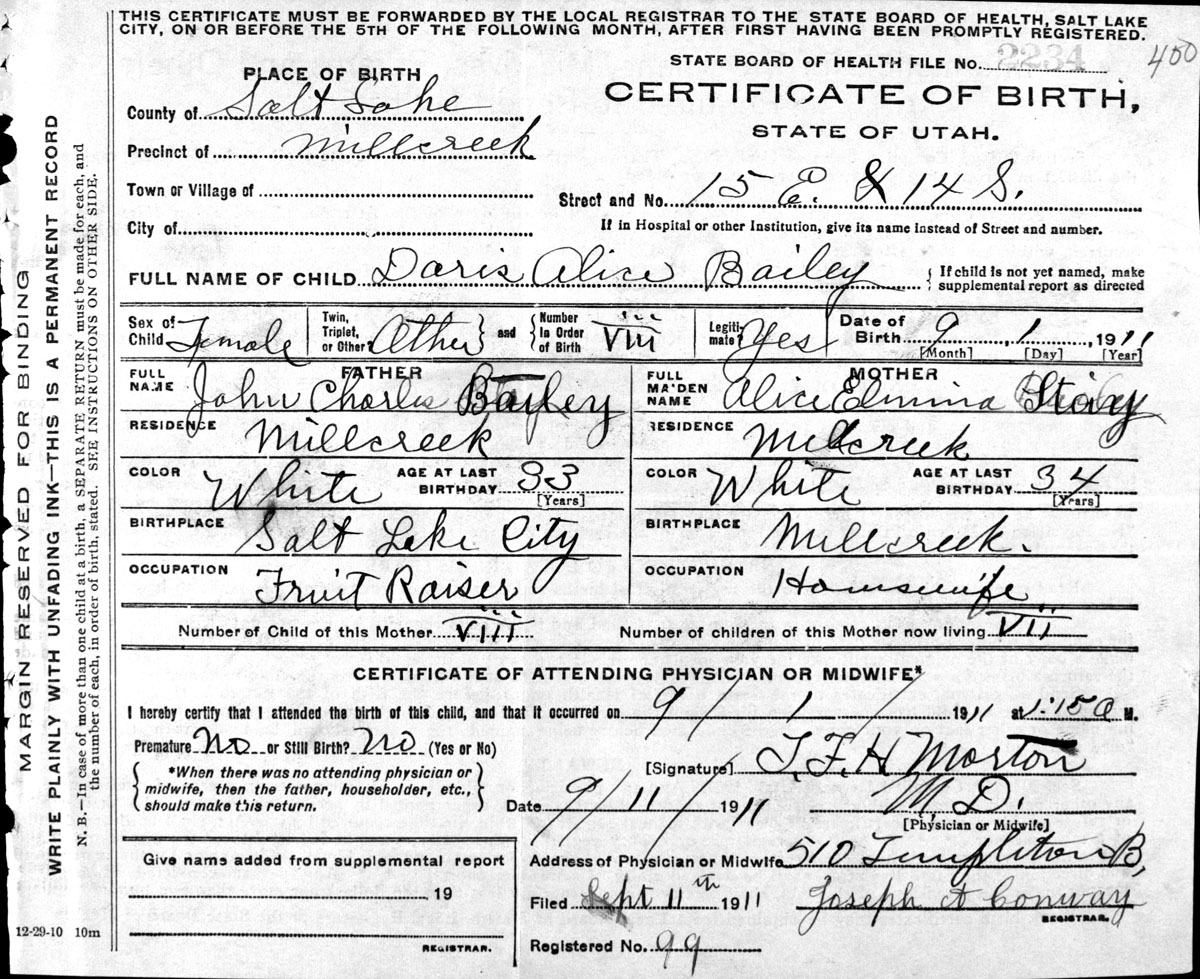 THIS CERTIFICATE MUST BE FORWARDED BY THE LOCAL REGISTRAR TO THE STATE BOARD OF HEALTH, SALT LAKE
CITY, ON OR BEFORE THE 5TH OF THE FOLLOWING MONTH, AFTER FIRST HAVING BEEN PROMPTLY REGISTERED.
STATE BOARD OF HEALTH FILE No. 2234 400
PLACE OF BIRTH
CERTIFICATE OF BIRTH,
STATE OF UTAH.
County of Salt Lake
Precinct of Millcreek
Town or Village of
Street and No. 15 E. & 14 S.
City of
If in Hospital or other Institution, give its name instead of Street and number.
FULL NAME OF CHILD Doris Alice Bailey { If child is not yet named, make
supplemental report as directed
Sex of Child Female Twin, Triplet, or Other? Other and Number In Order of Birth VIII Legitimate? Yes Date of Birth 9, 1, 1911
[Month] [Day] [Year]
FATHER MOTHER
FULL NAME John Charles Bayley FULL MAIDEN NAME Alice Elmina
RESIDENCE Millcreek RESIDENCE Millcreek
COLOR White AGE AT LAST BIRTHDAY 33 [Years] COLOR White AGE AT LAST BIRTHDAY 34 [Years]
BIRTHPLACE Salt Lake City BIRTHPLACE Millcreek.
OCCUPATION Fruit Raiser OCCUPATION Housewife
Number of Child of this Mother VIII Number of children of this Mother now living VII
CERTIFICATE OF ATTENDING PHYSICIAN OR MIDWIFE*
I hereby certify that I attended the birth of this child, and that it occurred on 9 / 1 / 1911 at 1:15 a M.
Premature No or Still Birth? No (Yes or No)
[Signature] T. F. H Morton
{ *When there was no attending physician or
midwife, then the father, householder, etc.,
should make this return. }
Date 9/11/ 1911 M. D.
[Physician or Midwife]
Address of Physician or Midwife 510 Templeton B,
Give name added from supplemental report
19
Filed Sept 11th 1911 Joseph A Conway
REGISTRAR.
Registered No. 99
REGISTRAR.
12-29-10 10m
MARGIN RESERVED FOR BINDING
WRITE PLAINLY WITH UNFADING INK—THIS IS A PERMANENT RECORD
N. B.—In case of more than one child at a birth, a SEPARATE RETURN must be made for each, and
the number of each, in order of birth, stated. SEE INSTRUCTIONS ON OTHER SIDE.